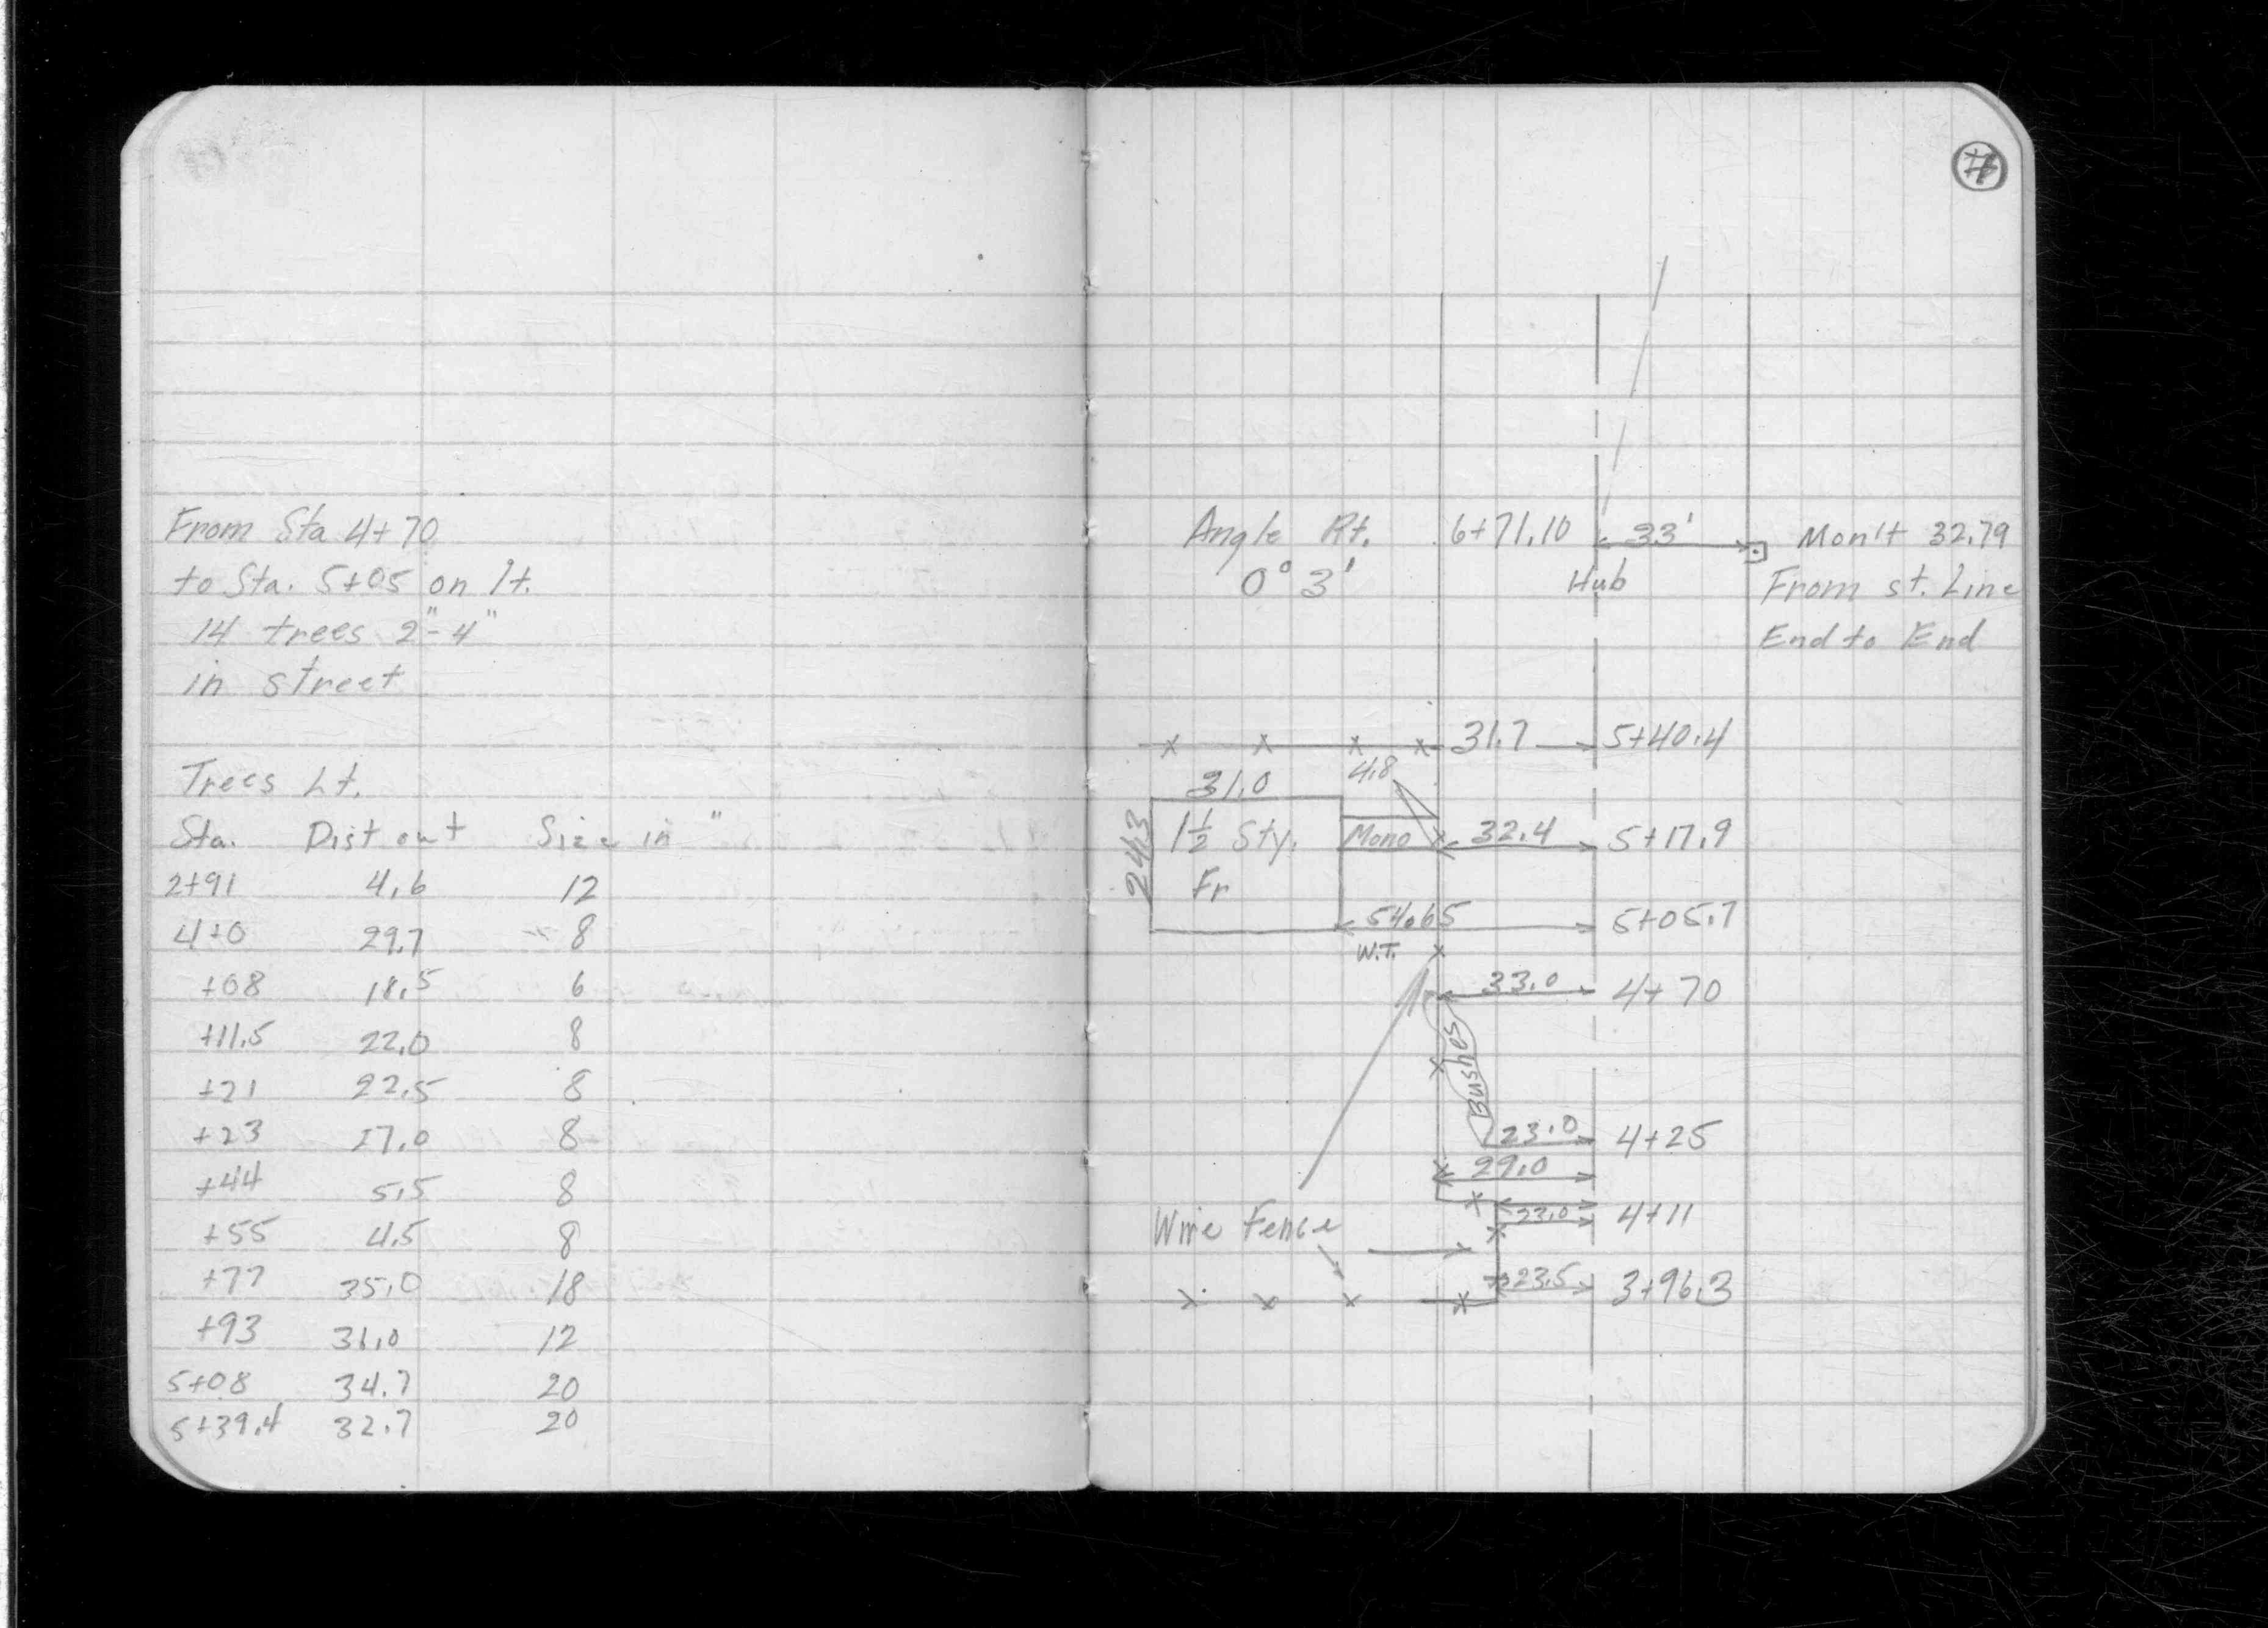 From Sta 4+70
to Sta. 5+05 on lt.
14 trees 2"-4"
in street
Trees Lt.
Sta. Dist out Size in "
2+91 4.6 12
4+0 29.7 8
+08 18.5 6
+11.5 22.0 8
+21 22.5 8
+23 17.0 8
+44 5.5 8
+55 4.5 8
+77 35.0 18
+93 31.0 12
5+08 34.7 20
5+39.4 32.7 20
Angle Rt. 6+71.10 33' Mon't 32.79
0° 3' Hub From st. Line
End to End
31.7 5+40.4
31.0 4.8
24.3 1½ Sty. Mono 32.4 5+17.9
Fr
54.65 5+05.7
W.T.
33.0 4+70
Bushes
23.0 4+25
29.0
Wire Fence 23.0 4+11
23.5 3+96.3